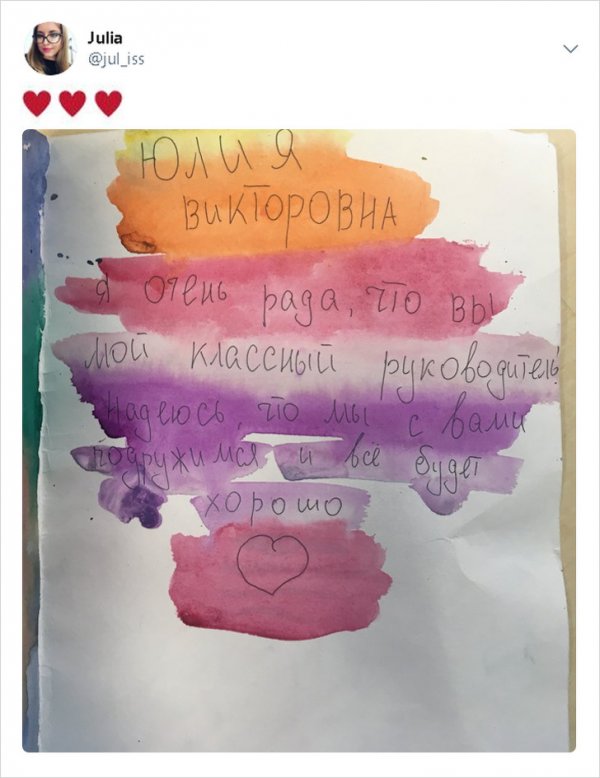 Julia
@jul_iss
♥♥♥
ЮЛИЯ
ВИКТОРОВНА
я очень рада, что вы
мой классный руководитель
Надеюсь, что мы с вами
подружимся и всё будет
хорошо